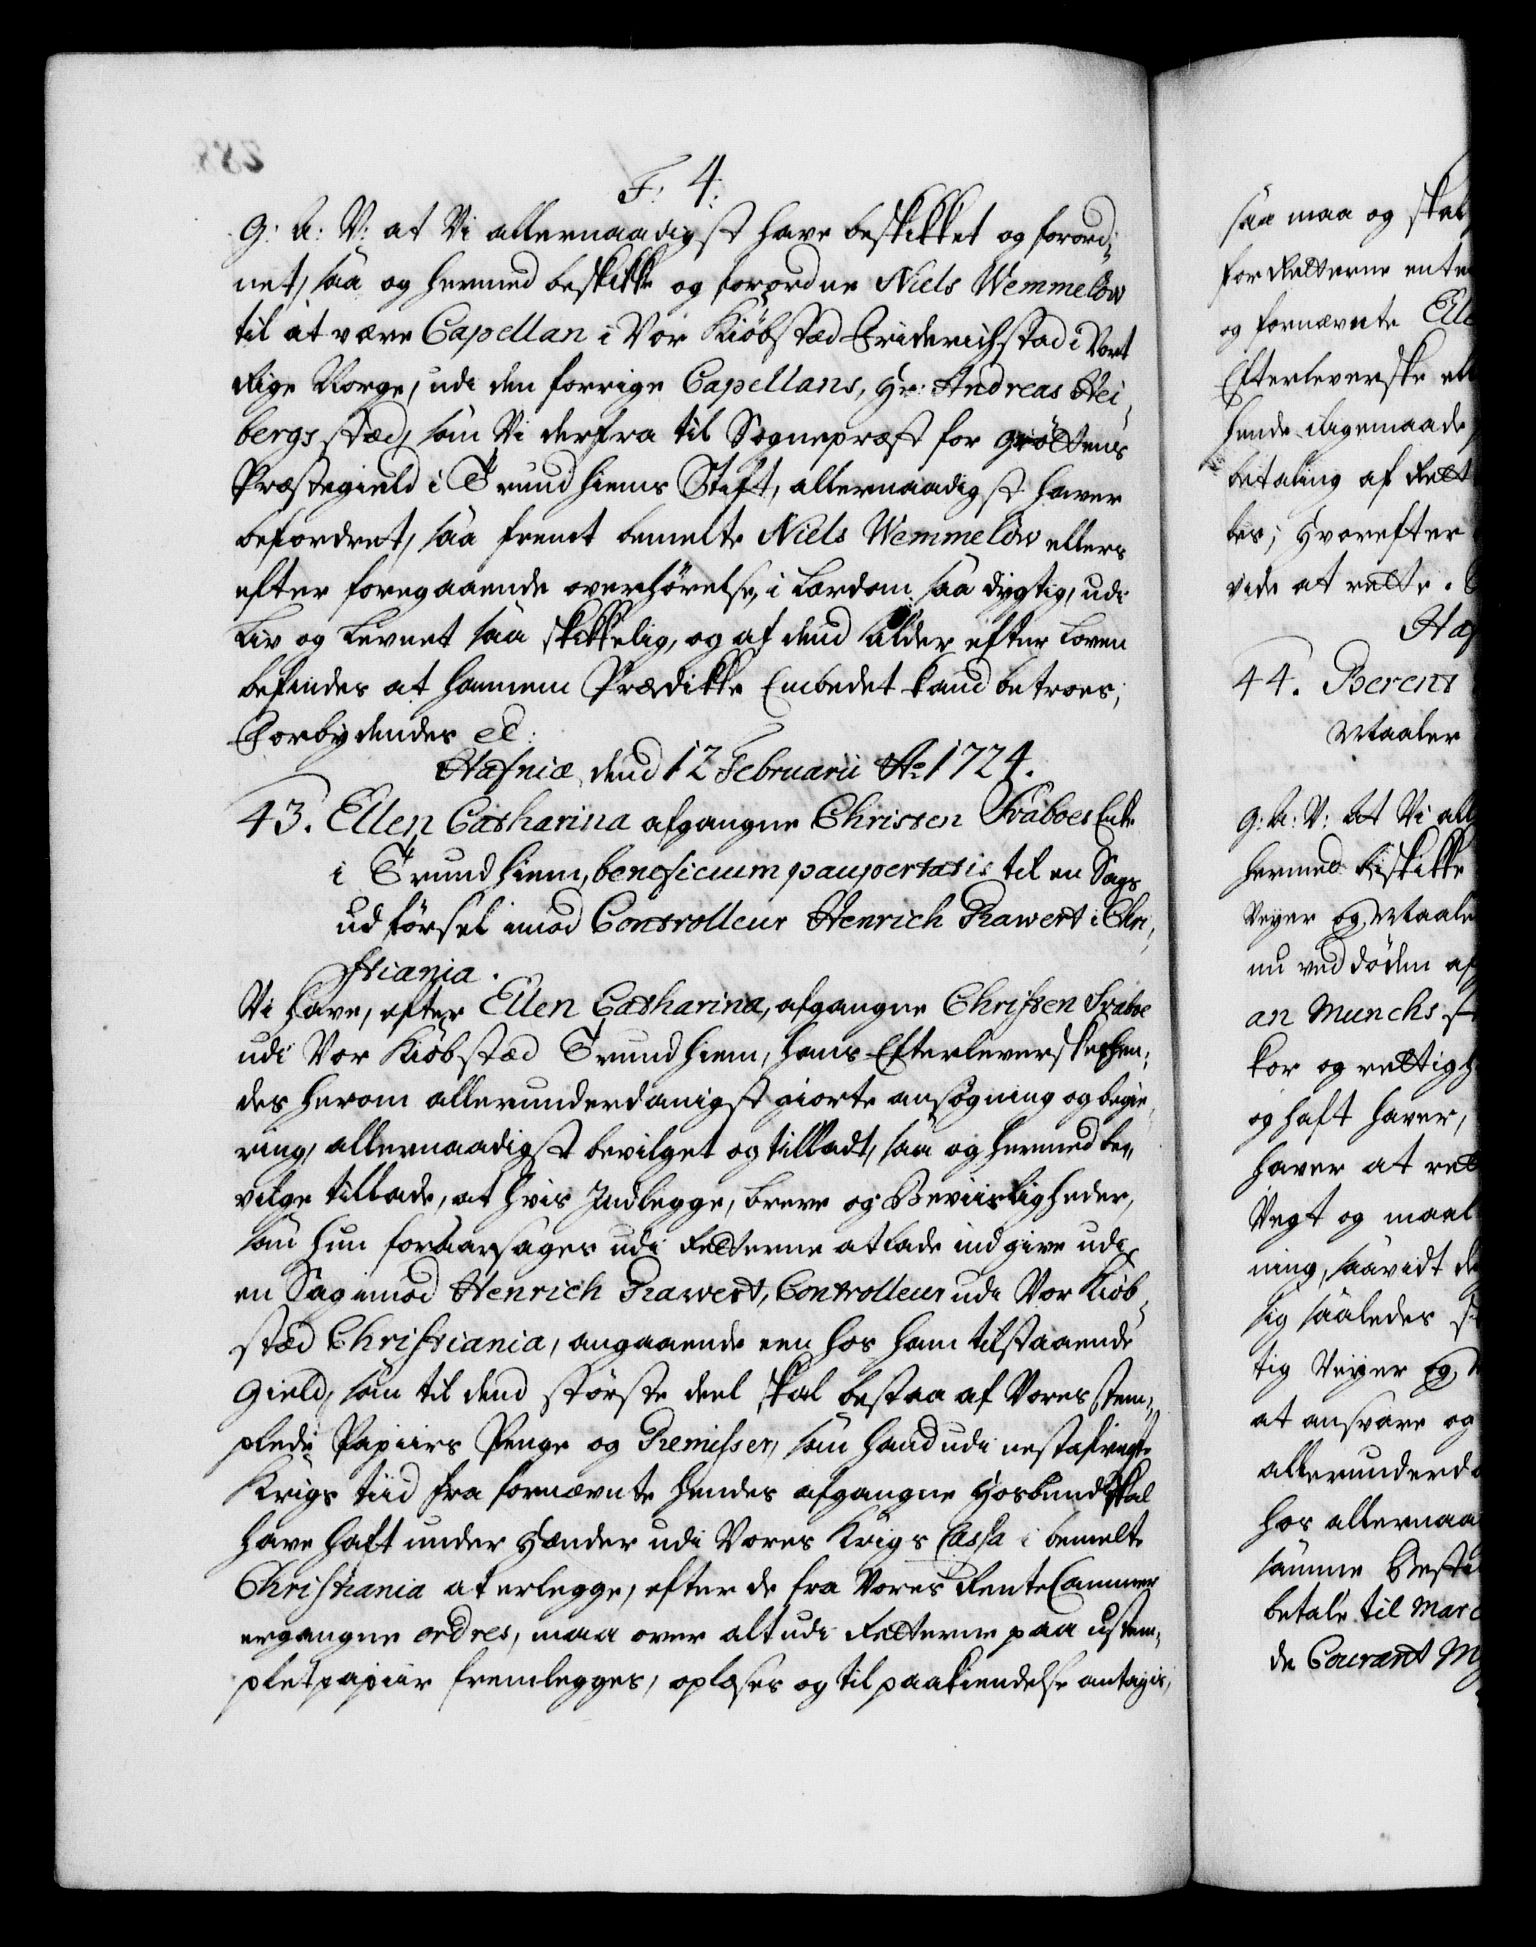 F: 4:
G: A: V: at Vi allernaadigst have beskikket og forord-
net, saa og hermed beskikke og forordne Niels Wemmelöw
til at være Capellan i Vor Kiöbstæd Friderichstad i Vort
Rige Norge, udi den forrige Capellans, Hr: Andreas Hei-
bergs stæd, som Vi derfra til Sognepræst for Grÿttens
Præstegield i Trundhiems Stift, allernaadigst haver
befordret, saa fremt bemelte Niels Wemmelöw ellers
efter foregaaende overhörelse, i Lærdom saa dygtig, udi
Liv og Levnet saa skikkelig, og af dend alder efter Loven
befindes at hannem Prædikke Embedet kand betroes;
Forbydendes etc:
Hafniæ dend 12 Februarii Ao 1724.
43. Ellen Catharina afgangne Christen Svaboes Enke
i Trundhiem, beneficium paupertatis til en Sags
udförsel imod Controlleur Henrich Rawert i Chri-
stiania.
Vi have, efter Ellen Catharina, afgangne Christen Svaboe
udi Vor Kiöbstæd Trundhiem, hans Efterleverskes hen-
des herom allerunderdanigst giorte ansögning og begie-
ring, allernaadigst bevilget og tilladt, saa og hermed be-
vilge tillade, at hvis Indlegge, breve og Beviisligheder,
som hun foraarsages udi Retterne at lade indgive udi
en Sag imod Henrich Rawert, Controlleur udi Vor Kiöb-
stæd Christiania, angaaende een hos ham tilstaaende
Gield, som til dend störste deel skal bestaa af Vores stem-
plede Papiirs Penge og Remisser, som hand udi nestafvigte
Krigs tiid fra fornævnte hendes afgangne Hosbund skal
have haft under Hænder udi Vores Krigs Cassa i bemelte
Christiania at erlegge, efter de fra Vores RenteCammer
ergangne ordres, maa over alt udi Retterne paa ustem-
plet papiir fremlegges, oplæses og til paakiendelse antages,
saa maa og skal
for Retterne ente
og fornævnte Elle
Efterleverske ell
hende ligemaade
betaling af Rett
bes; Hvorefter
vide at rette.
Haf
44. Berent
Maaler
G: A: V: At Vi all
hermed beskikke
Veyer og Maale
nu ved döden af
an Munchs st
kor og rettigh
og haft haver,
haver at rett
Vegt og maal
ning, saavidt de
sig saaledes
tig Veyer og
at ansvare og
allerunderda
hos allernaa
samme Besti
betale til Marc
de Courant My